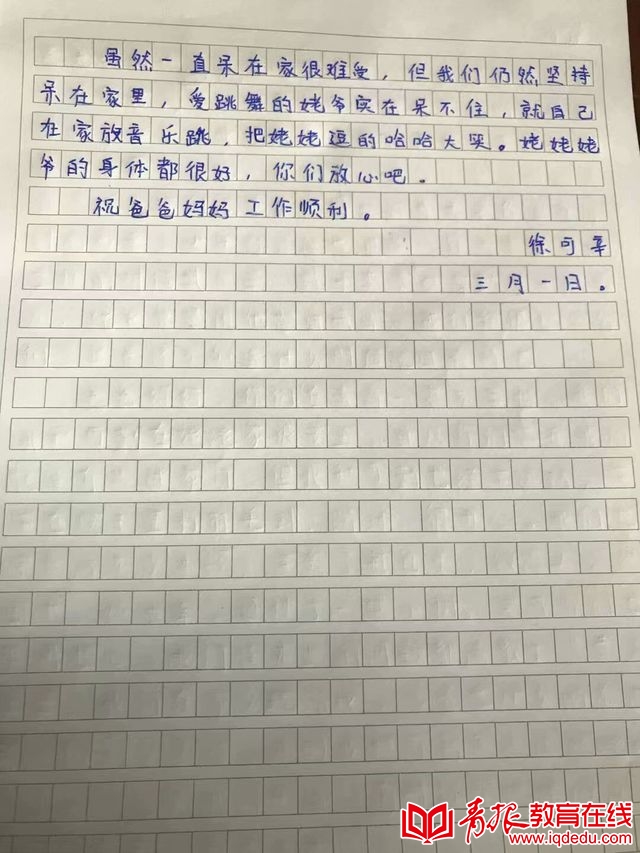 虽然一直呆在家很难受，但我们仍然坚持
呆在家里，爱跳舞的姥爷实在呆不住，就自己
在家放音乐跳，把姥姥逗的哈哈大笑。姥姥姥
爷的身体都很好，你们放心吧。
祝爸爸妈妈工作顺利。
徐可辛
三月一日。
青报教育在线
www.iqdedu.com